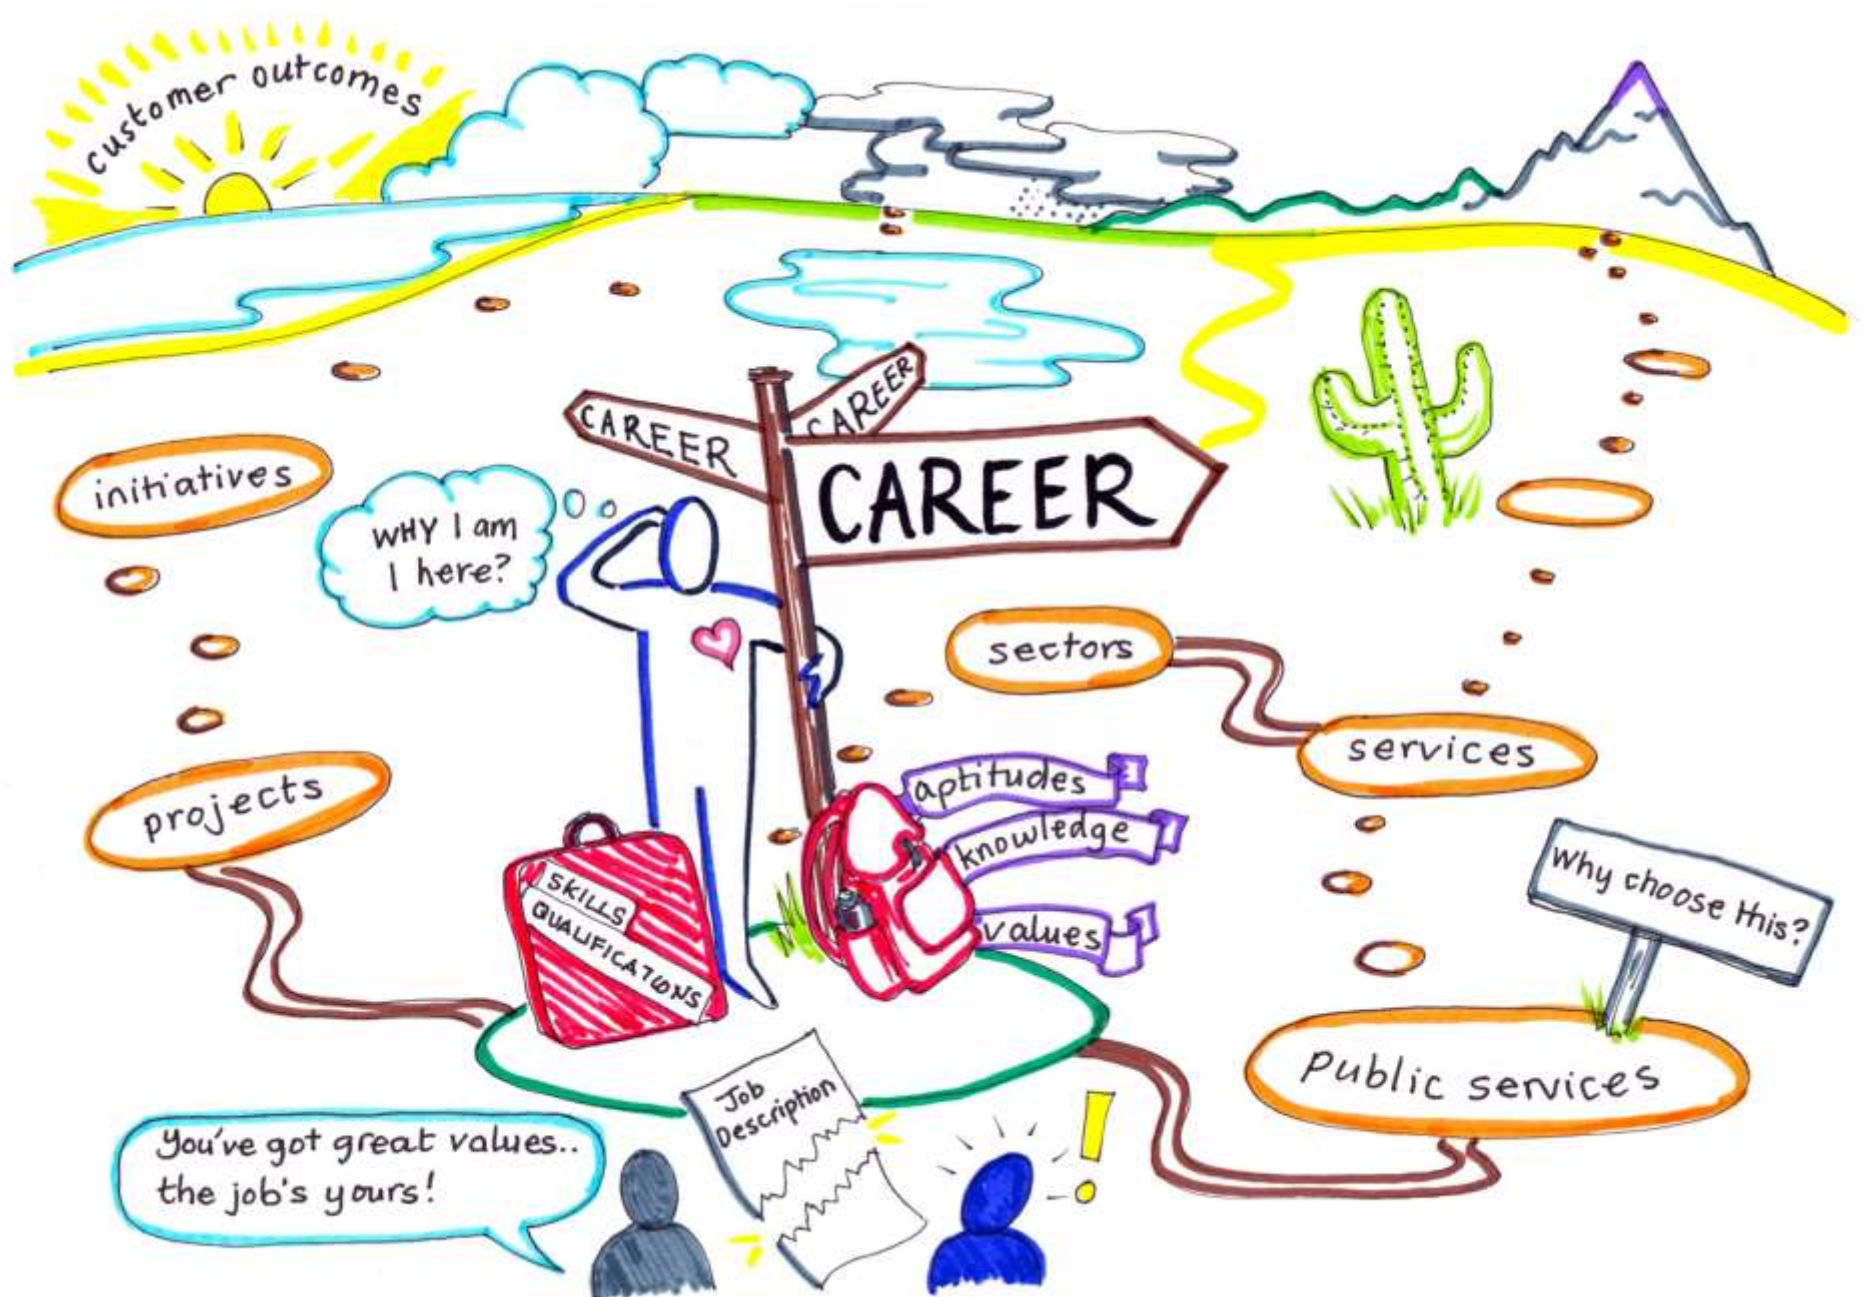 customer outcomes
CAREER
CAREER
CAREER
initiatives
WHY I am
I here?
sectors
services
projects
aptitudes
knowledge
values
SKILLS
QUALIFICATIONS
Why choose this?
Public services
Job
Description
You've got great values..
the job's yours!
!